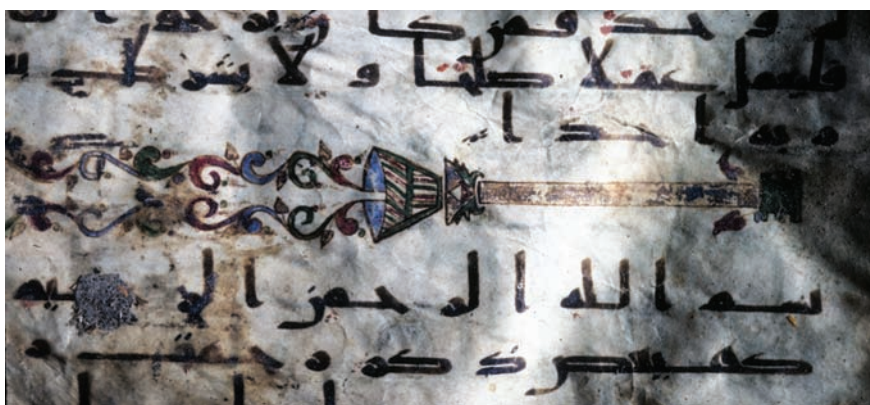 وحد فمن كا
فليعمل عملا صلحا و لا يشرك
ربه احدا
بسم الله الرحمن الرحيم
كهيعص ذكر رحمت